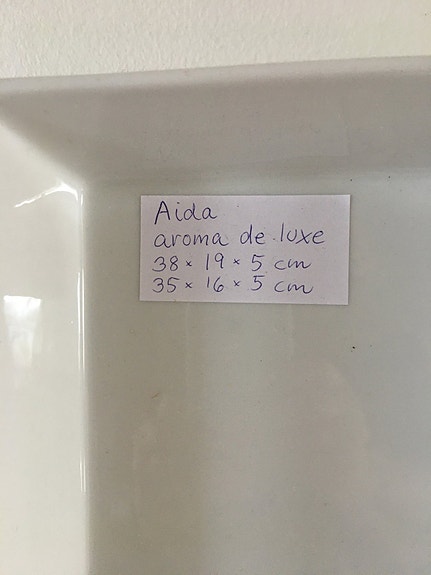 Aida
aroma de luxe
38 × 19 × 5 cm
35 × 16 × 5 cm